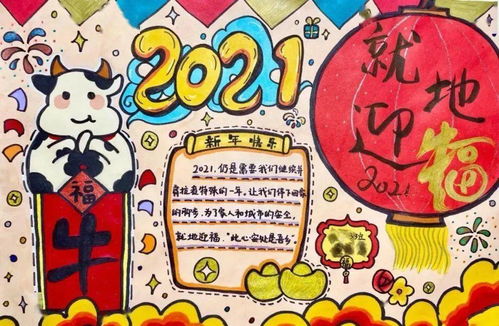 2021
就地
迎福
2021
福
牛
新年快乐
2021.仍是需要我们继续并
肩抗疫特殊的一年,让我们停下回家
的脚步,为了家人和城市的安全,
就地迎福,“此心安处是吾乡”
福